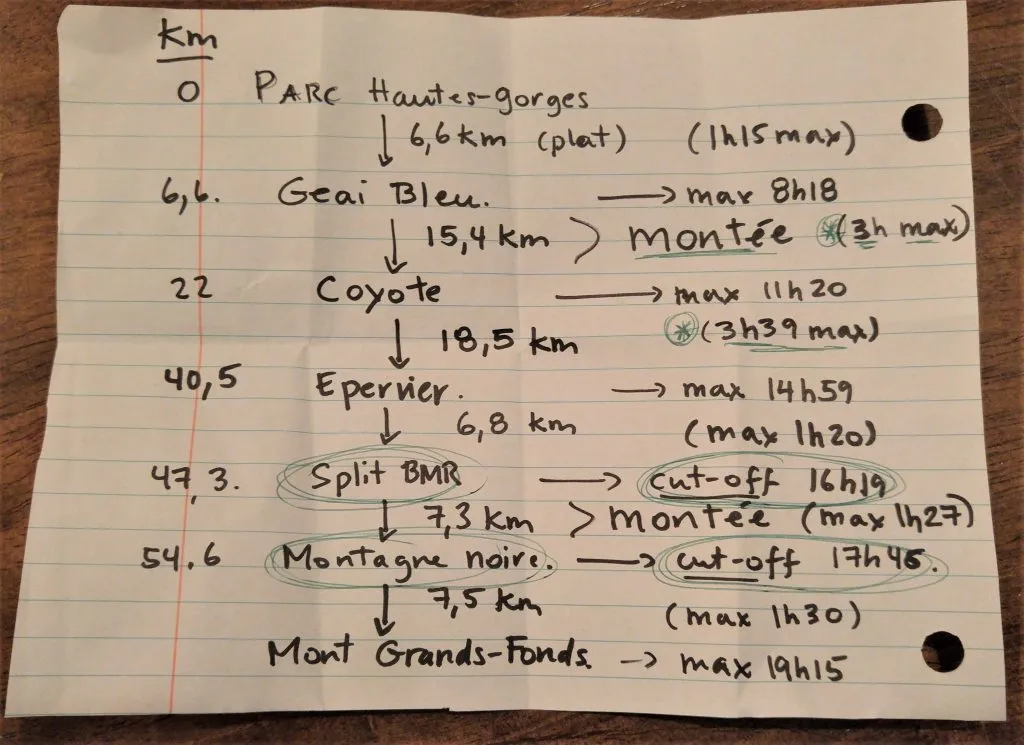 Km
0 PARC Hautes-gorges
↓ 6,6 km (plat) (1h15 max)
6,6. Geai Bleu. → max 8h18
↓ 15,4 km > montée *(3h max)
22 Coyote → max 11h20
↓ 18,5 km *(3h39 max)
40,5 Epervier. → max 14h59
↓ 6,8 km (max 1h20)
47,3. Split BMR → cut-off 16h19
↓ 7,3 km > montée (max 1h27)
54.6 Montagne noire. → cut-off 17h45.
↓ 7,5 km (max 1h30)
Mont Grands-Fonds. → max 19h15